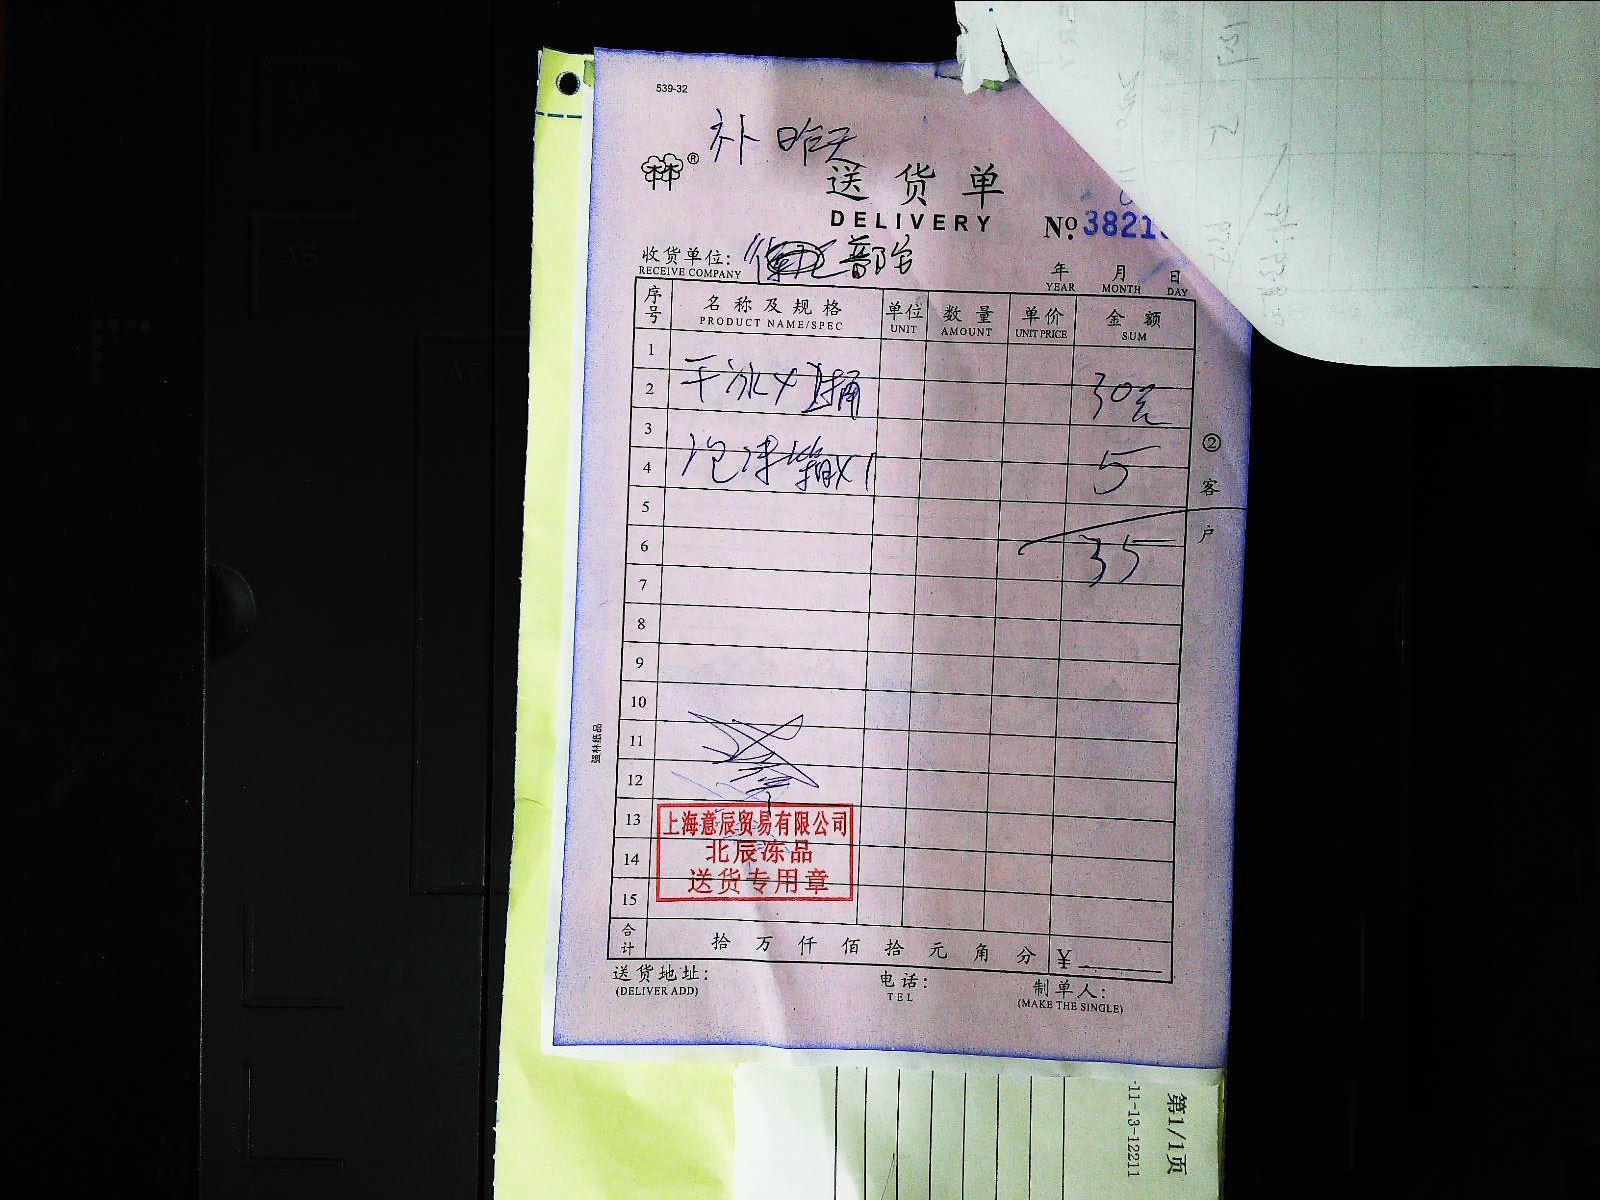 539-32
补 昨天
林®
送货单
DELIVERY
№ 3821
收货单位:
RECEIVE COMPANY
年 月 日
YEAR MONTH DAY
序号 名称及规格 单位 数量 单价 金额
PRODUCT NAME/SPEC UNIT AMOUNT UNIT PRICE SUM
1
2 干冰 30元
3
4 泡沫箱x1 5
5
6 35
7
8
9
10
11
12
13
14
15
② 客户
强林纸品
上海意辰贸易有限公司
北辰冻品
送货专用章
合计 拾 万 仟 佰 拾 元 角 分 ¥
送货地址: 电话: 制单人:
(DELIVER ADD) TEL (MAKE THE SINGLE)
第1/1页
-11-13-12211